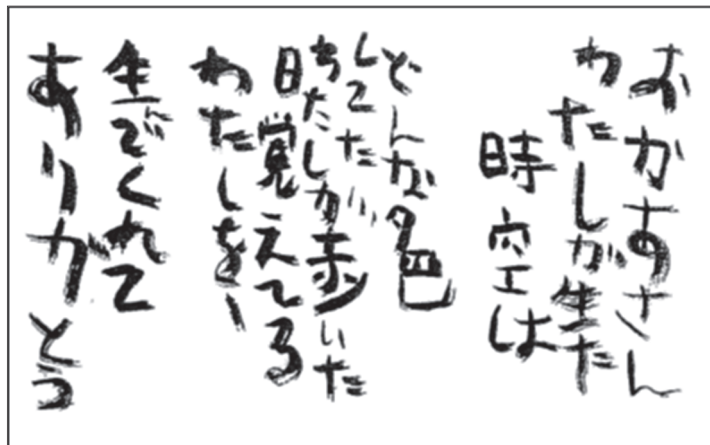 おかあさん
わたしが生た
時空は
どんな色
してた
わたしが歩いた
日覚えてる
わたしを、
生でくれて
ありがとう